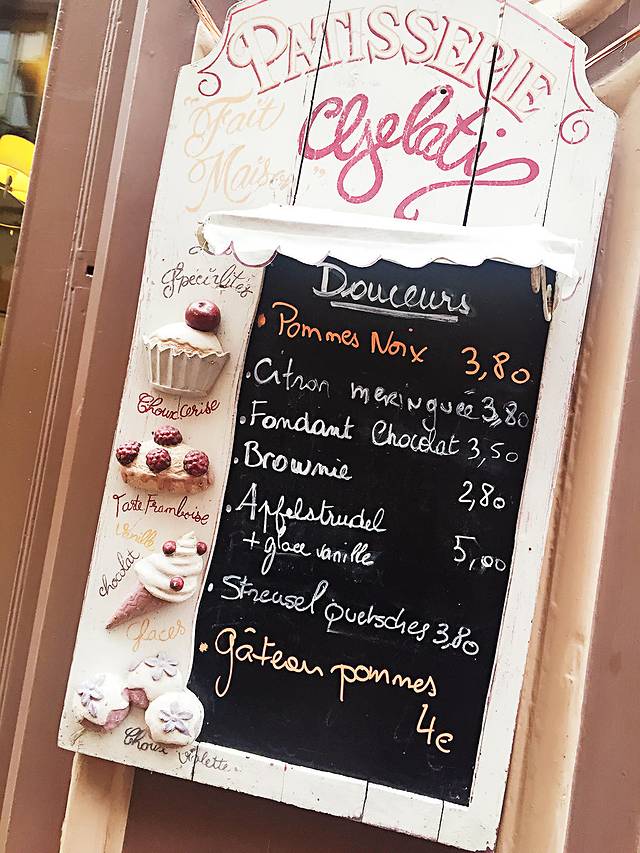 PATISSERIE
Gelati
"Fait
Maison"
Spécialités
Choux Cerise
Tarte Framboise
vanille
chocolat
Glaces
Choux violette
Douceurs
• Pommes Noix 3,80
• Citron meringuée 3,80
• Fondant Chocolat 3,50
• Brownie 2,80
• Apfelstrudel
+ glace vanille 5,00
• Streusel quetsches 3,80
• gâteau pommes
4€